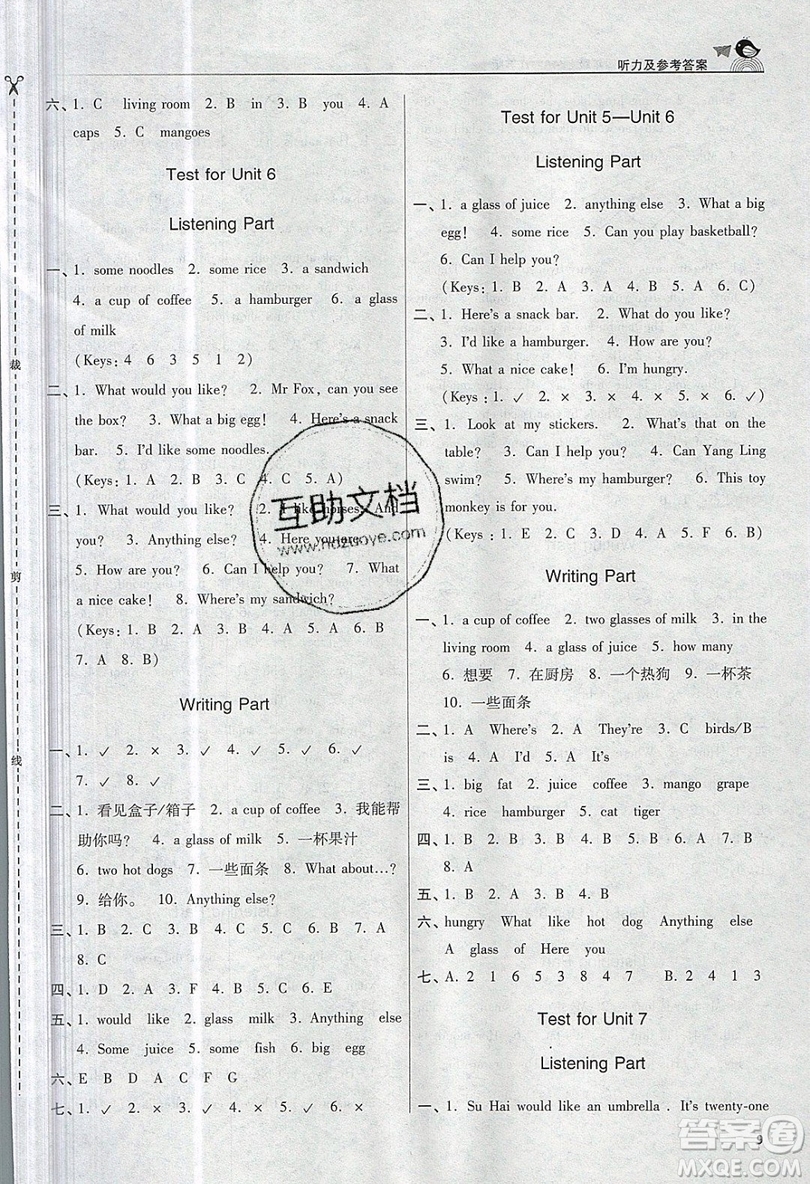 听力及参考答案
六、1. C living room 2. B in 3. B you 4. A
caps 5. C mangoes
Test for Unit 6
Listening Part
一、1. some noodles 2. some rice 3. a sandwich
4. a cup of coffee 5. a hamburger 6. a glass
of milk
(Keys: 4 6 3 5 1 2)
二、1. What would you like? 2. Mr Fox, can you see
the box? 3. What a big egg! 4. Here's a snack
bar. 5. I'd like some noodles.
(Keys: 1. A 2. B 3. C 4. C 5. A)
三、1. What would you like? 2. I like horses. And
you? 3. Anything else? 4. Here you are.
5. How are you? 6. Can I help you? 7. What
a nice cake! 8. Where's my sandwich?
(Keys: 1. B 2. A 3. B 4. A 5. A 6. B
7. A 8. B)
Writing Part
一、1. ✓ 2. × 3. ✓ 4. ✓ 5. ✓ 6. ×
7. ✓ 8. ✓
二、1. 看见盒子/箱子 2. a cup of coffee 3. 我能帮
助你吗? 4. a glass of milk 5. 一杯果汁
6. two hot dogs 7. 一些面条 8. What about…?
9. 给你。 10. Anything else?
三、1. B 2. C 3. B 4. C 5. B 6. B 7. A
8. C
四、1. D 2. A 3. B 4. F 5. C 6. E
五、1. would like 2. glass milk 3. Anything else
4. Some juice 5. some fish 6. big egg
六、E B D A C F G
七、1. ✓ 2. ✓ 3. × 4. × 5. ✓
Test for Unit 5—Unit 6
Listening Part
一、1. a glass of juice 2. anything else 3. What a big
egg! 4. some rice 5. Can you play basketball?
6. Can I help you?
(Keys: 1. B 2. A 3. B 4. A 5. B 6. C)
二、1. Here's a snack bar. 2. What do you like?
3. I'd like a hamburger. 4. How are you?
5. What a nice cake! 6. I'm hungry.
(Keys: 1. ✓ 2. × 3. × 4. × 5. ✓ 6. ✓)
三、1. Look at my stickers. 2. What's that on the
table? 3. Can I help you? 4. Can Yang Ling
swim? 5. Where's my hamburger? 6. This toy
monkey is for you.
(Keys: 1. B 2. C 3. D 4. A 5. F 6. E)
Writing Part
一、1. a cup of coffee 2. two glasses of milk 3. in the
living room 4. a glass of juice 5. how many
6. 想要 7. 在厨房 8. 一个热狗 9. 一杯茶
10. 一些面条
二、1. A Where's 2. A They're 3. C birds/B
is 4. A I'd 5. A It's
三、1. big fat 2. juice coffee 3. mango grape
4. rice hamburger 5. cat tiger
四、1. B 2. B 3. B 4. C 5. B 6. A 7. B
8. A
五、1. B 2. A 3. B 4. A 5. B
六、hungry What like hot dog Anything else
A glass of Here you
七、A. 2 1 6 5 3 8 7 4 B. 2 4 1 3
Test for Unit 7
Listening Part
一、1. Su Hai would like an umbrella . It's twenty-one
9
裁
剪
线
互助文档
答案圈
MXQE.COM